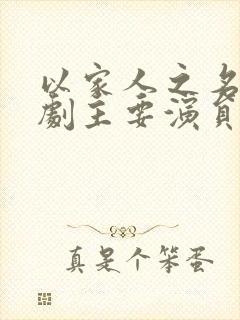 以家人之名
劇主要演員
真是个笨蛋